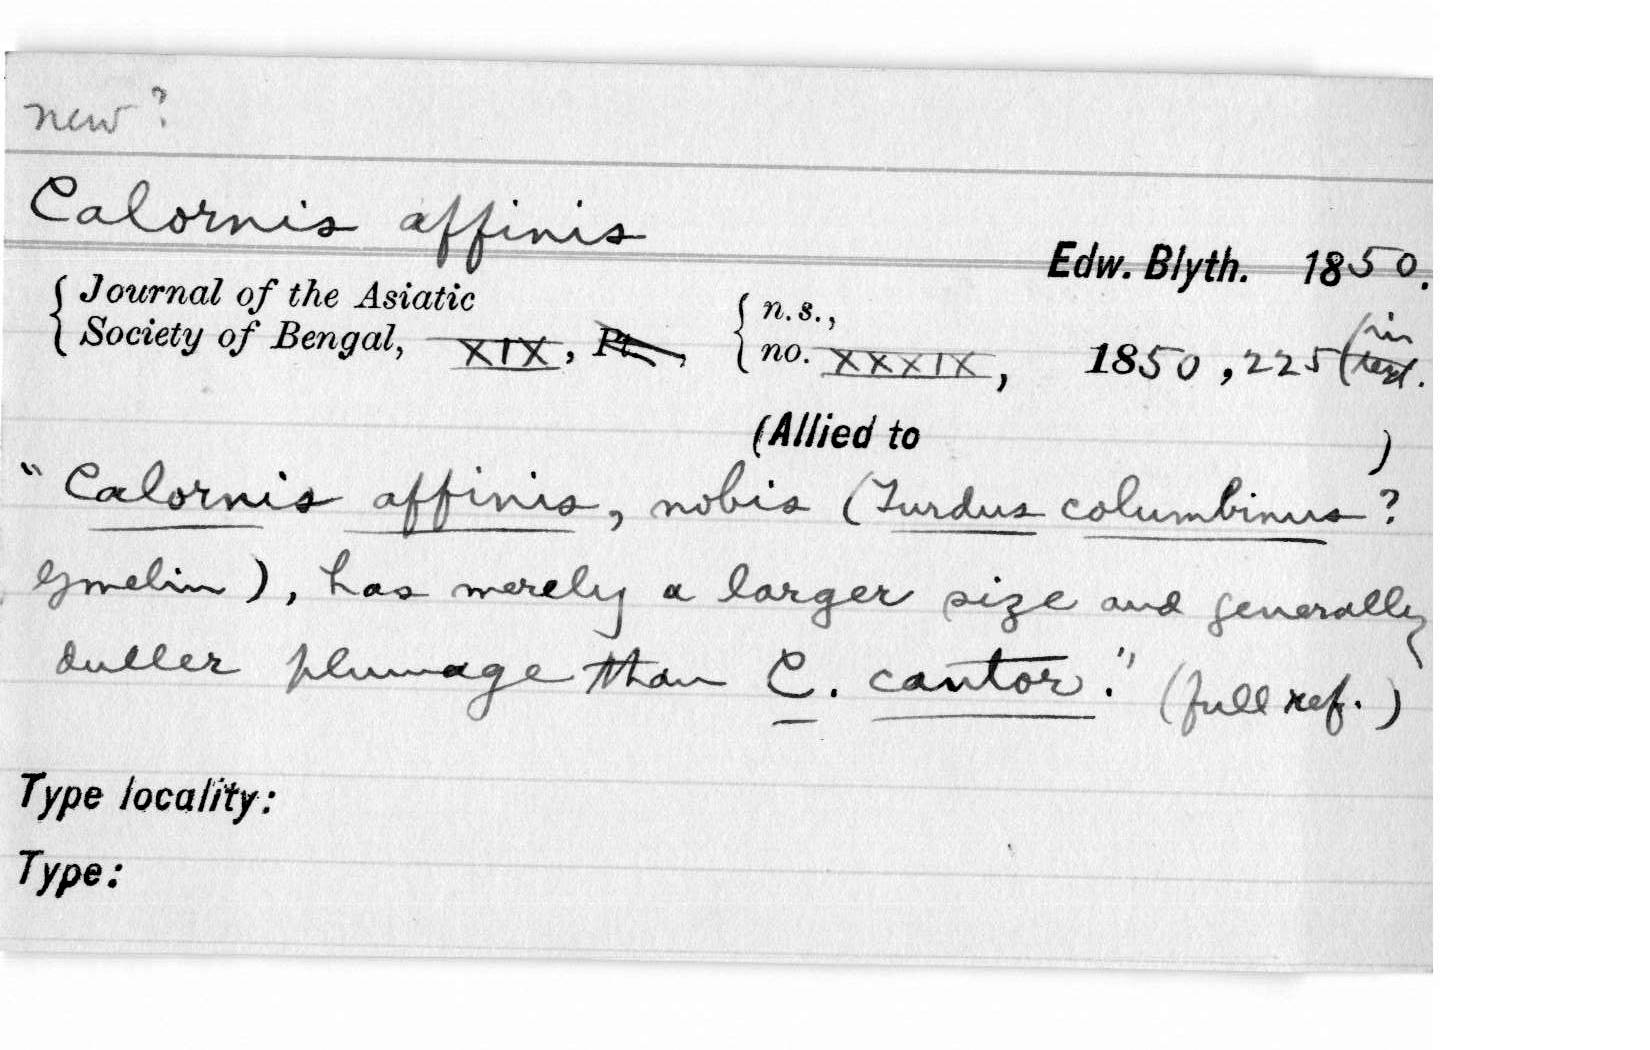 new?
Calornis affinis
Edw. Blyth. 1850.
{ Journal of the Asiatic
Society of Bengal, XIX, Pt., { n.s.,
no. XXXIX, 1850, 225 (in
text.
(Allied to )
"Calornis affinis, nobis (Turdus columbinus?
Gmelin), has merely a larger size and generally
duller plumage than C. cantor." (full ref.)
Type locality:
Type: